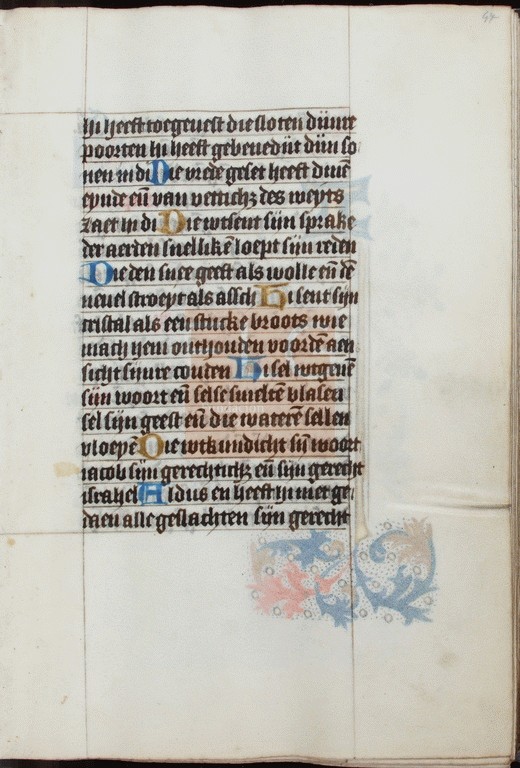 94
hi heeft toegeuest die sloten dijnre
poorten hi heeft gebenedijt dijn so
nen in di Die vrede geset heeft dinē
eynde eñ van vetticħʒ des weyts
zaet in di Die wtsent sijn sprake
der aerden snellikē loept sijn reden
Die den snee geeft als wolle eñ dē
neuel stroeyt als assch Hi sent sijn
cristal als een stucke broots wie
mach hem onthouden voordē aen
sicht sijnre couden Hi sel wtgeuē
sijn woort eñ selse smeltē blasen
sel sijn geest eñ die waterē sellen
vloeyē Die wtkundicht sij woort
iacob sijn gerechticħʒ eñ sijn gerecht
israhel Aldus en heeft hi niet ge
daen alle geslachten sijn gerecht